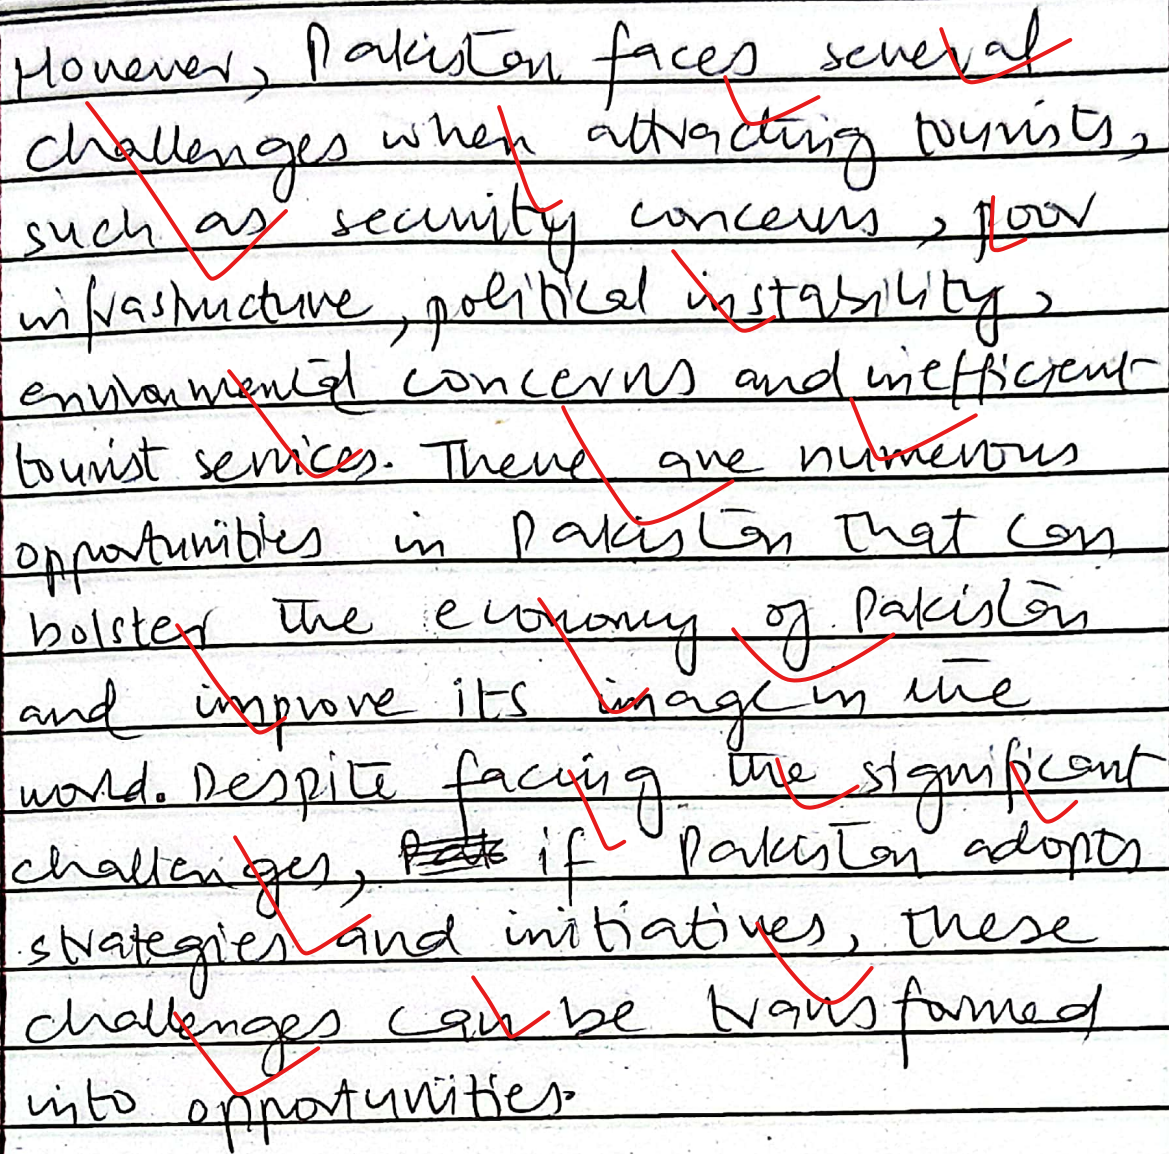 However, Pakistan faces several
challenges when attracting tourists,
such as security concerns, poor
infrastructure, political instability,
environmental concerns and inefficient
tourist services. There are numerous
opportunities in Pakistan that can
bolster the economy of Pakistan
and improve its image in the
world. Despite facing the significant
challenges, if Pakistan adopts
strategies and initiatives, these
challenges can be transformed
into opportunities.